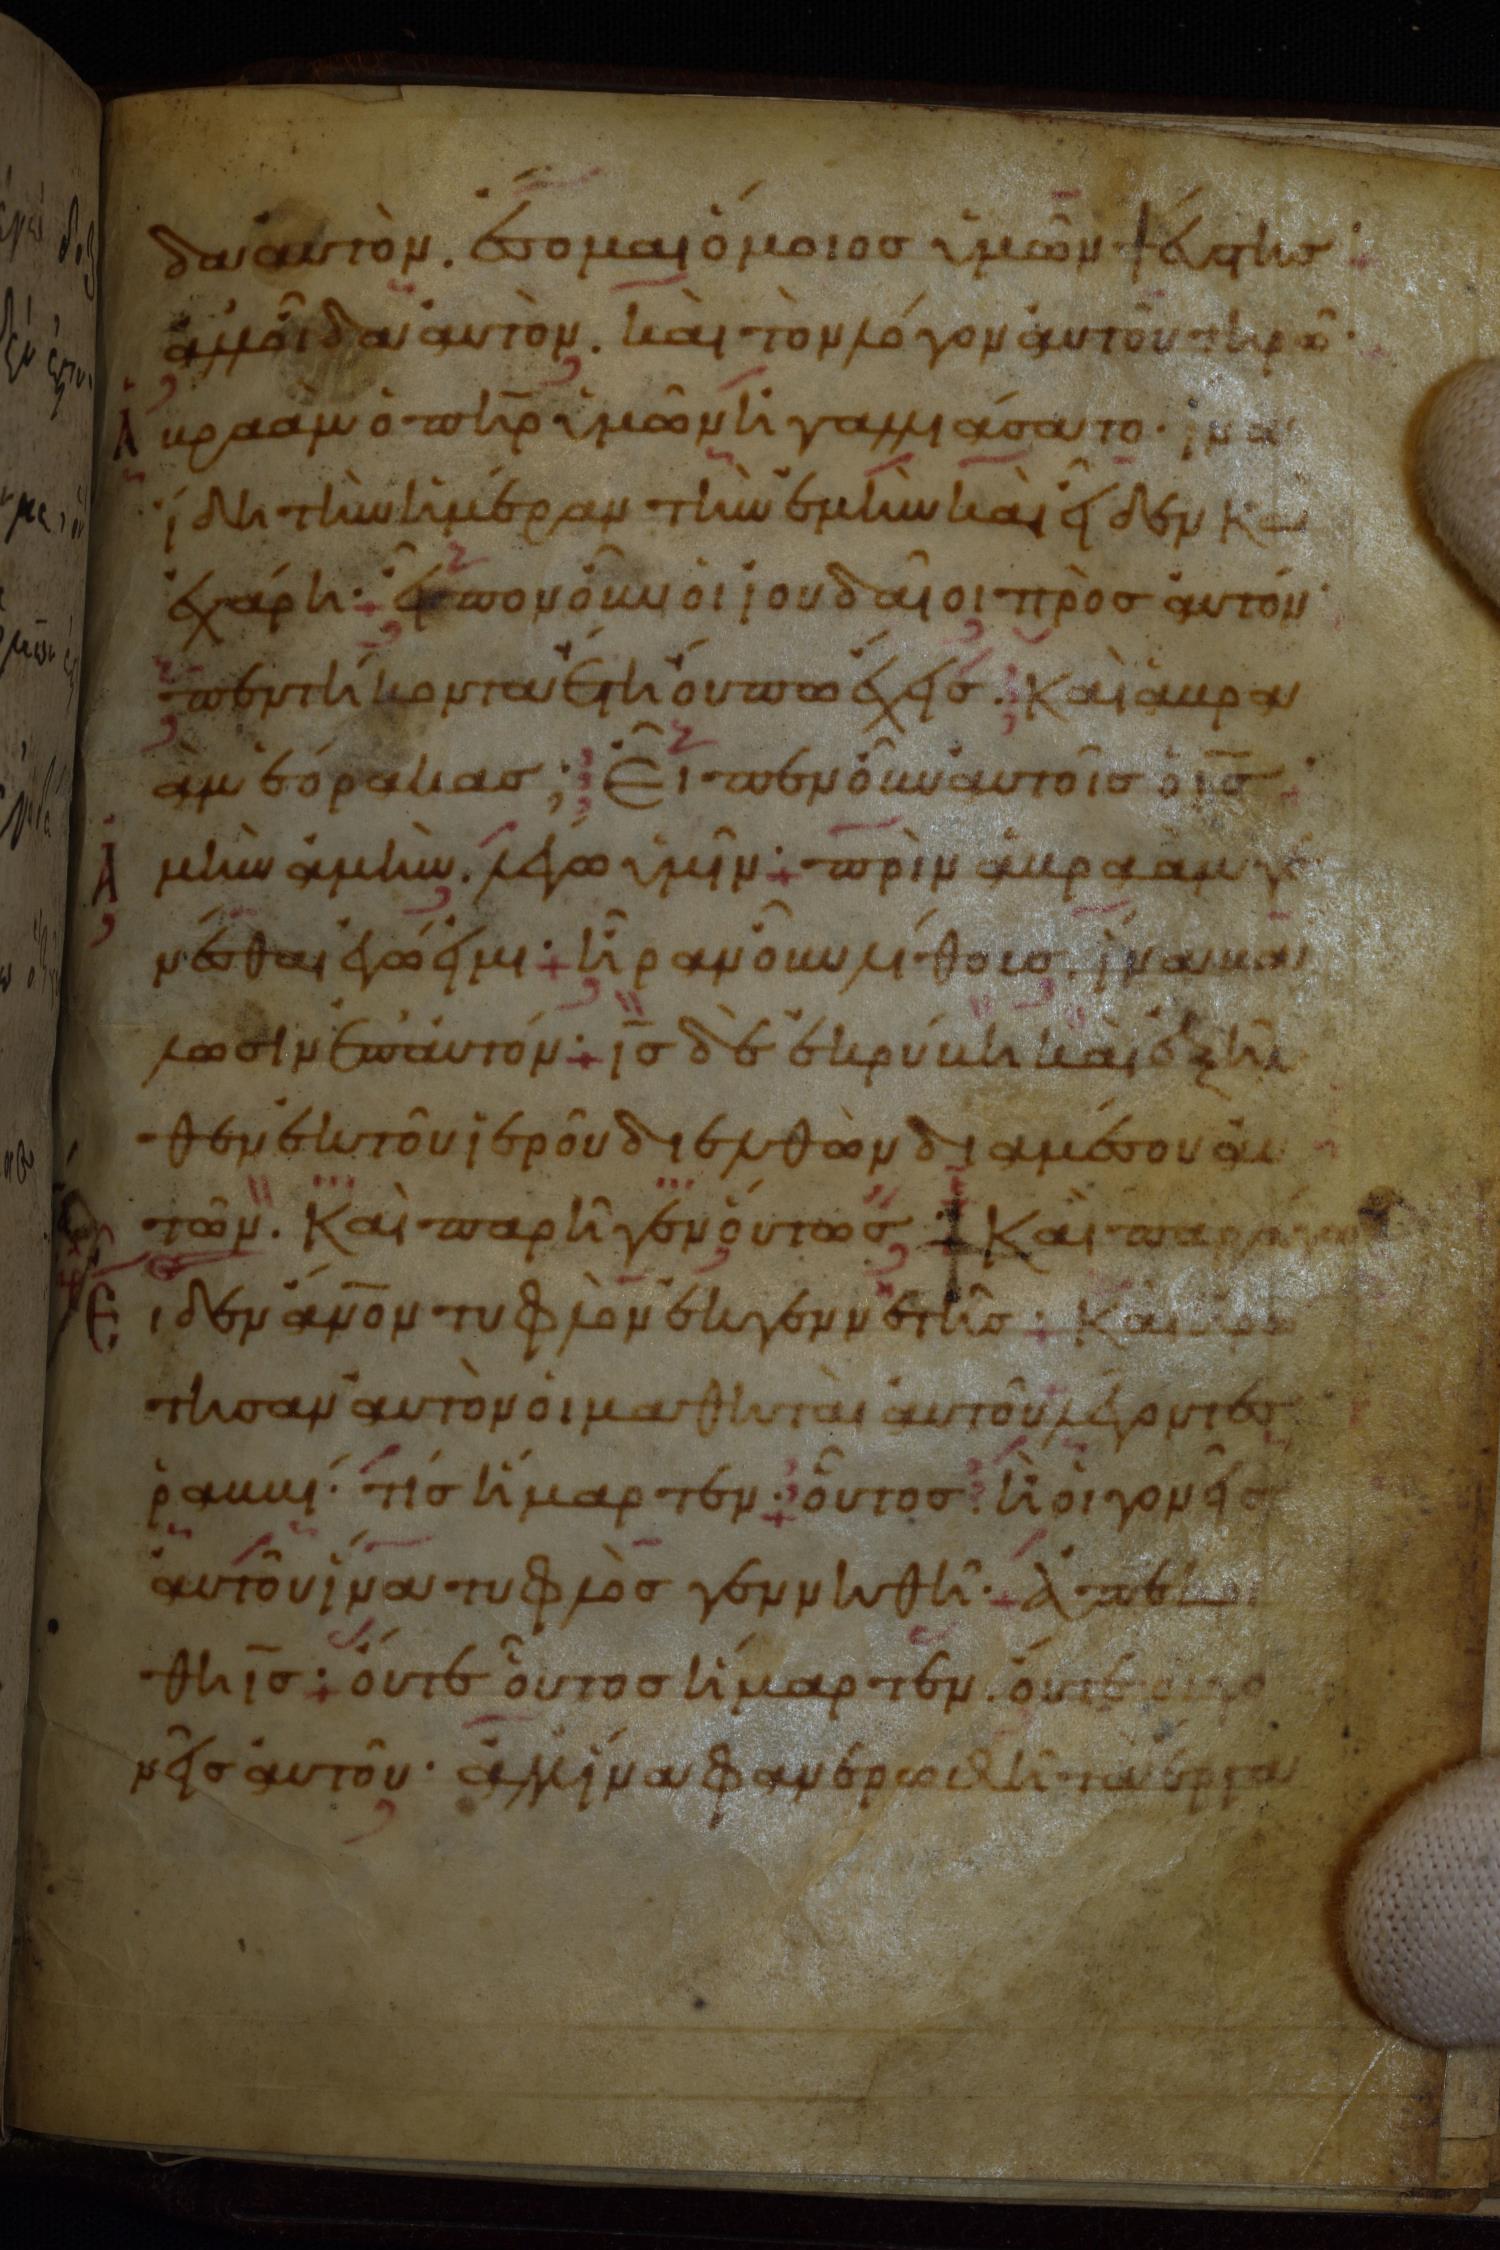 δα αὐτὸν. ἔσομαι ὅμοιος ὑμῶν ψεύστης·
ἀλλ' οἶδα αὐτὸν. καὶ τὸν λόγον αὐτοῦ τηρῶ·
Ἀβραὰμ ὁ πη̅ρ ὑμῶν ἠγαλλιάσατο· ἵνα
ἴδη τὴν ἡμέραν τὴν ἐμὴν καὶ εἶδεν καὶ
ἐχάρη· εἶπον οὖν οἱ ἰουδαῖοι πρὸς αὐτόν·
πεντήκοντα ἔτη οὔπω ἔχεις. Καὶ ἀβρα
ὰμ ἑόρακας; Εἶπεν οὖν αὐτοῖς ὁ ι̅ς̅·
Ἀμὴν ἀμὴν. λέγω ὑμῖν· πρὶν ἀβραὰμ γε
νέσθαι ἐγώ εἰμι· ἦραν οὖν λίθους. ἵνα βά
λωσιν ἐπ' αὐτόν· ι̅ς̅ δὲ ἐκρύβη καὶ ἐξῆλ
θεν ἐκ τοῦ ἱεροῦ διελθὼν δια μέσου αὐ
τῶν. Καὶ παρῆγεν οὕτως· Καὶ παράγων
Εἶδεν ἄν̅ο̅ν τυφλὸν ἐκ γεννετῆς· Καὶ ἠρώ
τησαν αὐτὸν οἱ μαθηταὶ αὐτοῦ λέγοντες
ῥαββί· τίς ἥμαρτεν· οὗτος ἢ οἱ γονεῖς
αὐτοῦ ἵνα τυφλὸς γεννηθῆ· Ἀπεκρί
θη ι̅ς̅· οὔτε οὗτος ἥμαρτεν. οὔτε οἱ γο
νεῖς αὐτοῦ· ἀλλ' ἵνα φανερωθῆ τὰ ἔργα